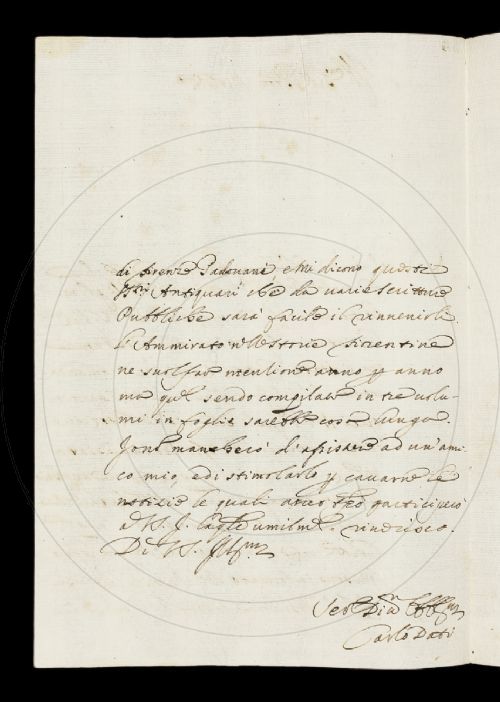 di Firenze Padovani, e mi dicono questi
SSri Antiquari che da varie scritture
Pubbliche sarà facile il rinvenirle.
L'Ammirato nelle storie fiorentine
ne suol far menzione anno p anno
ma quel sendo compilato in tre volu-
mi in foglio sarebbe cosa lunga.
Io no mancherò d'avvisare ad un ami-
co mio, ed i stimolarlo p cavarne le
notizie le quali parteciperò
a V. S. umilme
Di V. S.
Carlo Dati